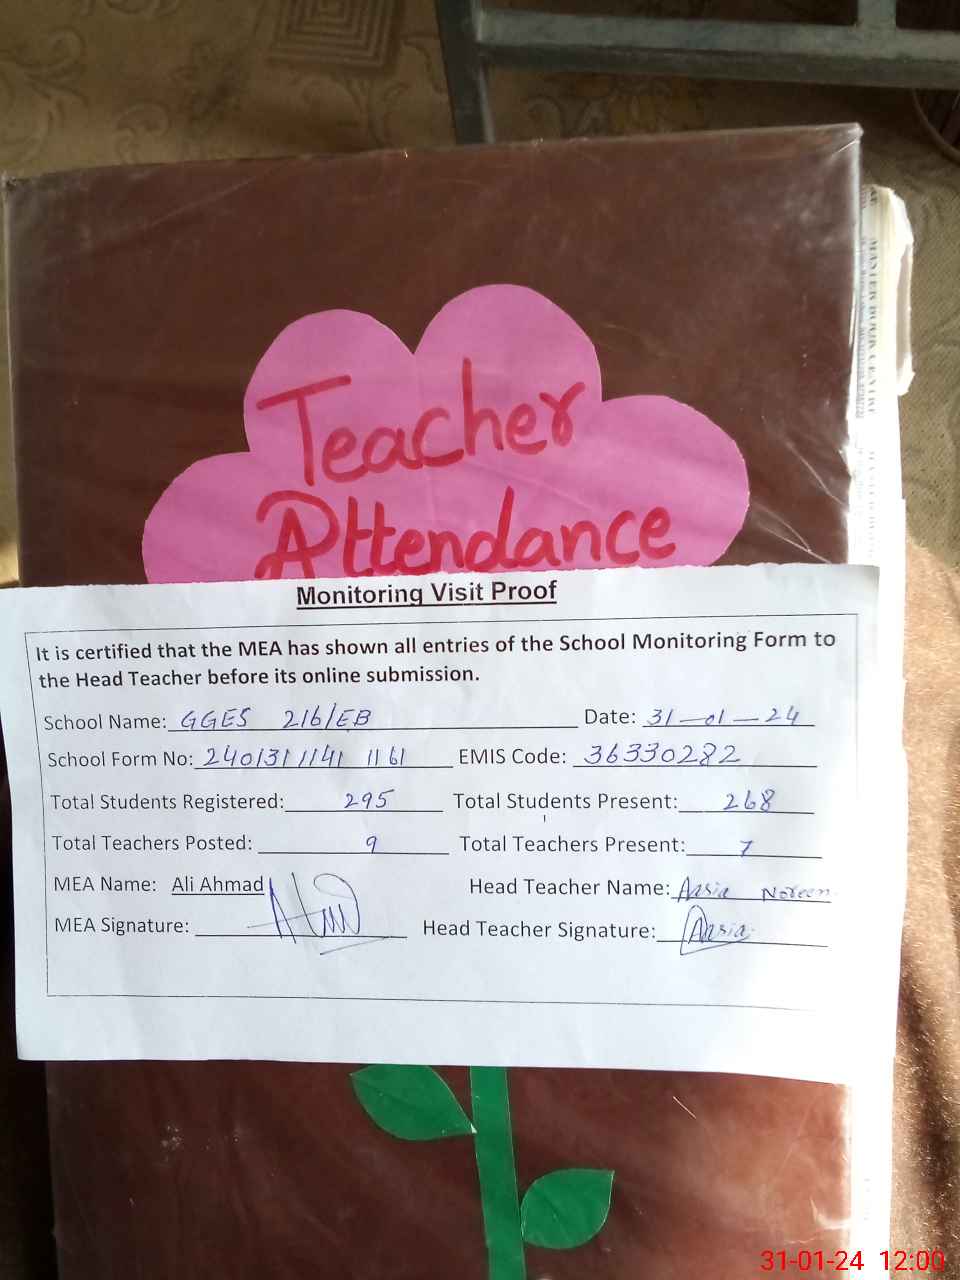 Teacher
Attendance
Monitoring Visit Proof
It is certified that the MEA has shown all entries of the School Monitoring Form to
the Head Teacher before its online submission.
School Name: GGES 216/EB Date: 31-01-24
School Form No: 240131 1141 1161 EMIS Code: 36330282
Total Students Registered: 295 Total Students Present: 268
Total Teachers Posted: 9 Total Teachers Present: 7
MEA Name: Ali Ahmad Head Teacher Name: Aasia Noreen
MEA Signature: Head Teacher Signature: Aasia
MASTER BOOK CENTRE
31-01-24 12:00